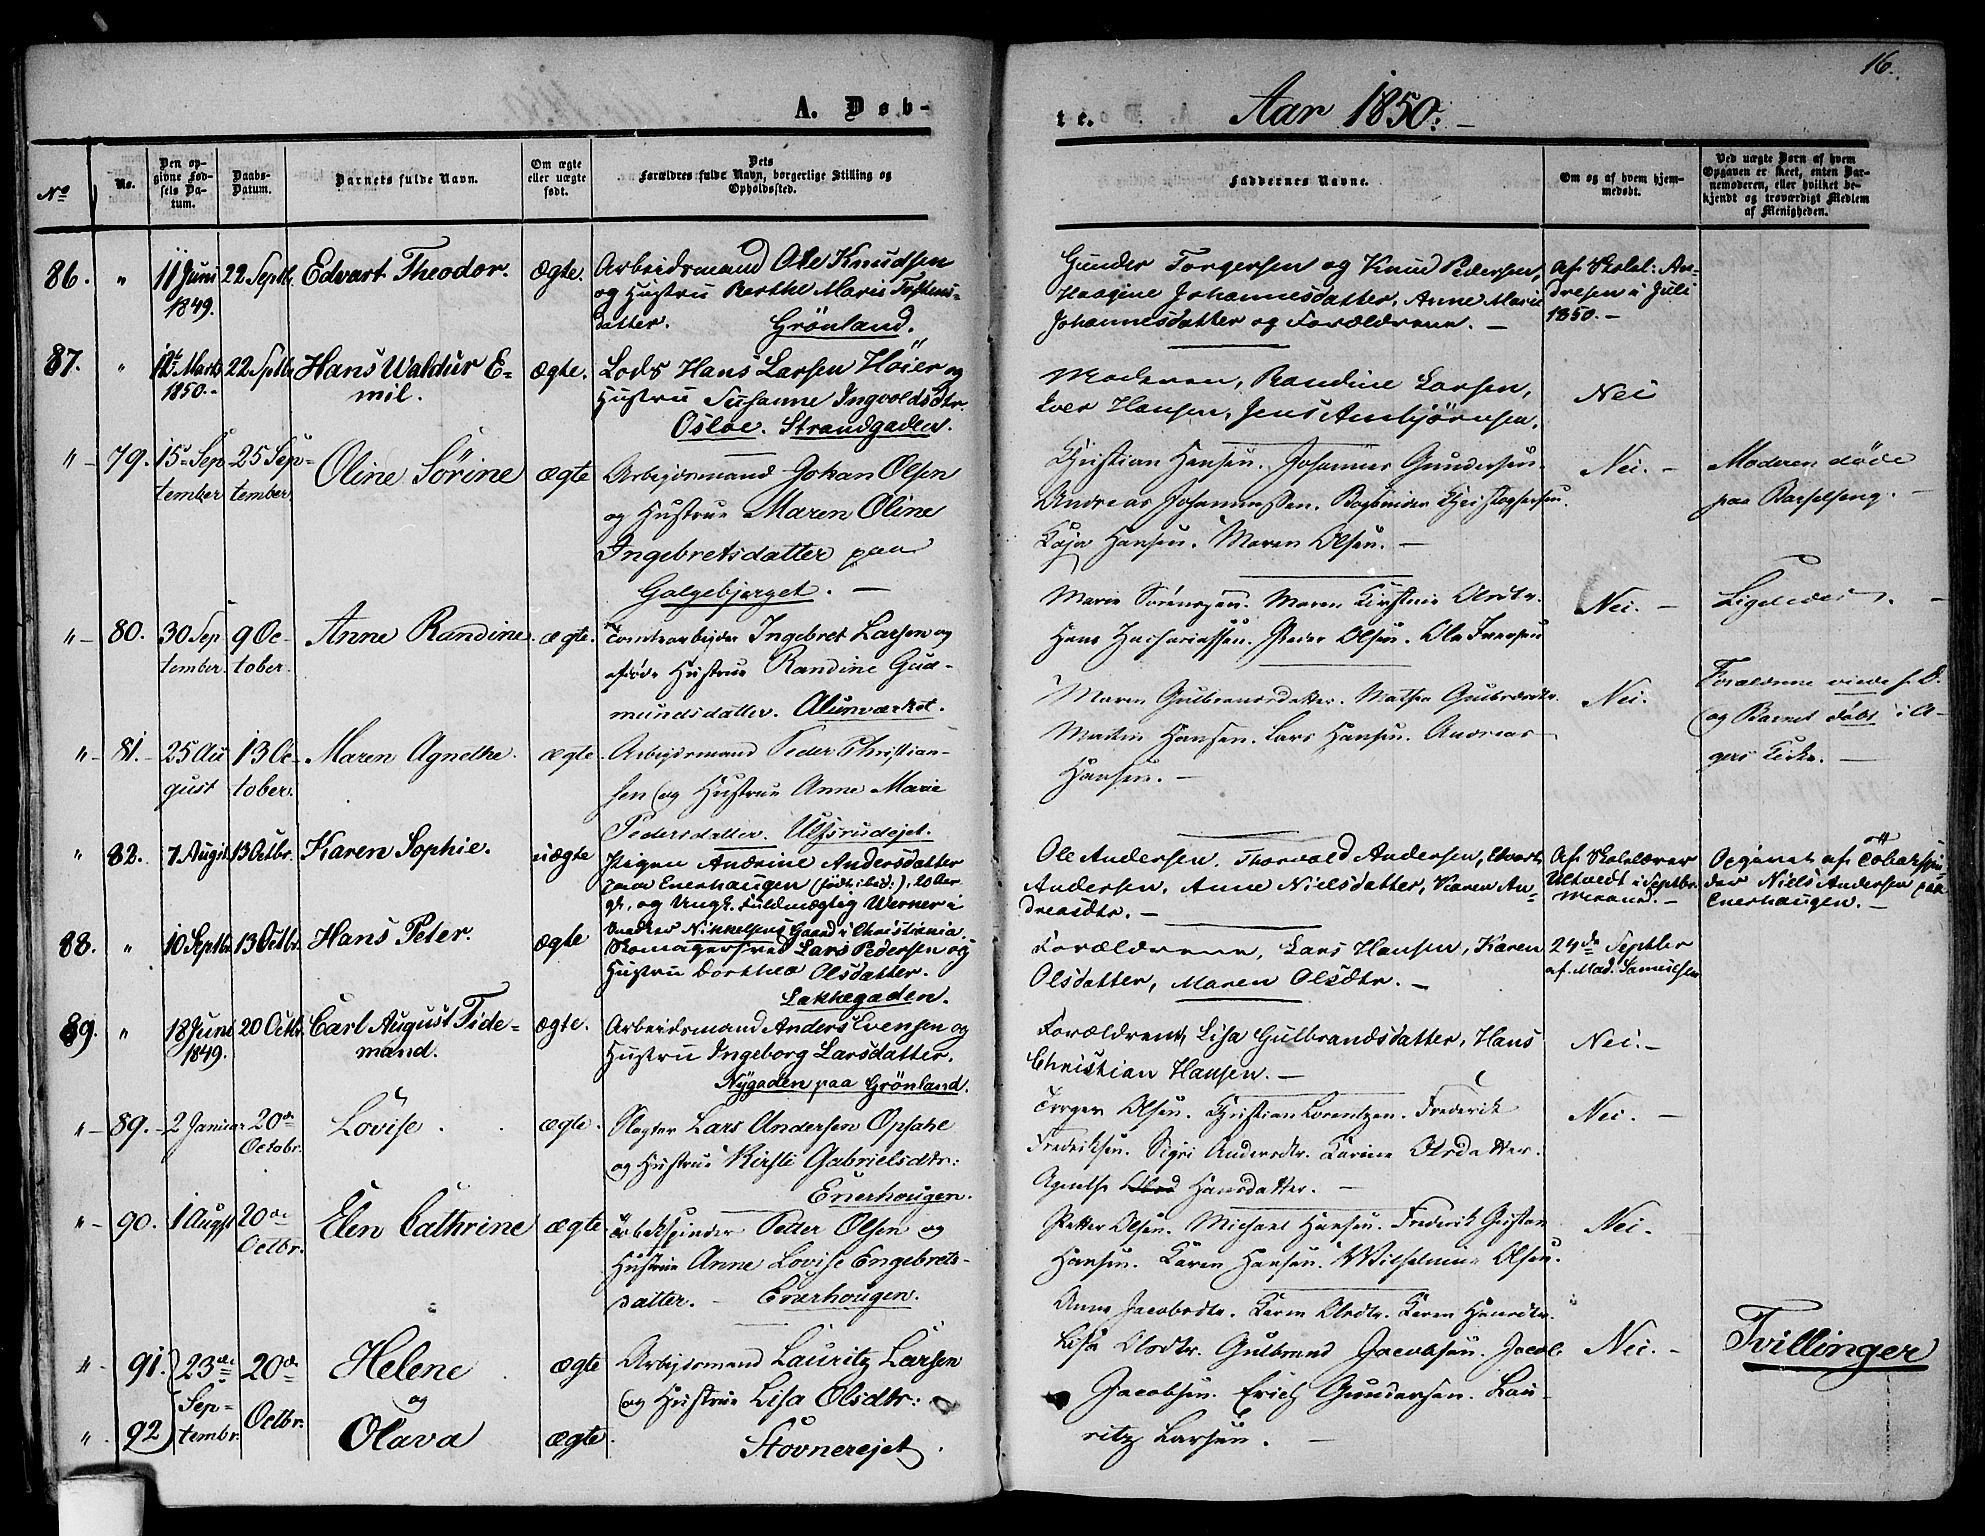 16.
A. Døb-
te. Aar 1850.
No
No.
Den op-
givne Fød-
sels Da-
tum.
Daabs-
Datum.
Barnets fulde Navn.
Om ægte
eller uægte
født.
Dets
Forældres fulde Navn, borgerlige Stilling og
Opholdssted.
Faddernes Navne.
Om og af hvem hjem-
medøbt.
Ved uægte Børn af hvem
Opgaven er skeet, enten Bar-
nemoderen, eller hvilket be-
kjendt og troværdigt Medlem
af Menigheden.
86. " 11 Juni 22 Septbr. Edvart Theodor. Ægte. Arbeidsmand Ole Knudsen
1849. og Hustru Berthe Marie
datter. Grönland.
Gunder Torgersen og Knud Pedersen,
Johannesdatter, Anne Marie
Johannesdatter og Forældrene. —
Af Skolel: An-
dresen i Juli
1850. —
87. " 12t Marts 22 Sptbr Hans Waldur E- ægte. Lods Hans Larsen Höier og
1850. mil. Hustru Susanne Ingvoldsdtr.
Osloe. Strandgaden.
Moderen, Randine Larsen,
Iver Hansen, Jens Ambjörnsen.
Nei
" 79. 15 Sep 25 Sep- Oline Sörine ægte Arbejdsmand Johan Olsen
tember tember. og Hustrue Maren Oline
Ingebretsdatter paa
Galgebjerget. —
Christian Hansen. Johannes Gundersen.
Andreas Johannessen. Bogbinder Christophersen.
Kaja Hansen. Maren Olsen. —
Nei. —
Moderen döde
paa Barselseng. —
" 80. 30 Sep 9 Oc- Anne Randine ægte. Tomtearbejder Ingebret Larsen og
tember tober. afdöde Hustrue Randine Gud-
mundsdatter. Alunværket.
Marie Sörensen. Maren Kirstine Olsdtr.
Hans Zachariassen. Peder Olsen. Ole Iversen
Nei. —
Ligeledes. —
" 81. 25 Au 13 Oc- Maren Agnethe. ægte Arbejdsmand Peder Christian-
gust tober. sen og Hustrue Anne Marie
Pedersdatter. Ulfsrudejet.
Maren Gulbrandsdatter. Mathea Gulbrdsdtr.
Martin Hansen. Lars Hansen. Andreas
Hansen. —
Nei.
Forældrene viede
og Barnet döbt i A-
gers Kirke. —
" 82. 7 Augst. 13 Octbr. Karen Sophie. uægte Pigen Andrine Andersdatter
paa Enerhaugen (född ibid:), 20 Aar
gl., og Ungk. Fuldmægtig Werner i
Gaard i Christiania.
Ole Andersen, Thorvald Andersen, Edvart
Andersen, Anne Nielsdatter, Karen An-
dreasdtr. —
Af Skolelærer
Ultvedt i Septbr.
Maaned. —
Opgivet af Tobaksspin-
der Niels Andersen paa
Enerhaugen. —
88. " 10 Septbr 13 Octbr. Hans Peter. ægte Skomagersvend Lars Pedersen og
Hustru Dorthea Olsdatter.
Lakkegaden.
Forældrene, Lars Hansen, Karen
Olsdatter, Maren Olsdtr. —
24de Septbr
af Mad. Samuelsen
89. " 18 Juni 20 Octbr. Carl August Tide- ægte. Arbeidsmand Anders Evensen og
1849. mand. Hustru Ingeborg Larsdatter.
Nygaden paa Grönland.
Forældrene, Lisa Gulbrandsdatter, Hans
Christian Hansen. —
Nei. —
" 89. 2 Januar 20de Lovise. ægte. Slagter Lars Andersen Opsahl
Octobr. og Hustrue Kirsti Gabrielsdtr:
Enerhougen.
Torger Olsen. Christian Lorentzen. Frederik
Fredriksen. Sigri Andersdtr. Karine Olsdatter.
Agnethe Hansdatter. —
Nei. —
" 90. 1 Augst 20de Elen Cathrine ægte Tobakspinder Petter Olsen og
Octbr. Hustrue Anne Lovise Engebrets-
datter. — Enerhougen.
Petter Olsen. Michael Hansen. Frederik Gustav
Hansen. Karen Hansen. Wilhelmine Olsen.
Nei.
" 91. 23de 20de Helene ægte Arbejdsmand Lauritz Larsen
Sep- og og Hustrue Lisa Olsdtr:
" 92 tembr. Octbr. Olava ægte. Stovnerejet.
Anne Jacobsdtr. Karen Olsdtr. Karen Hansdtr.
Lisa Olsdtr. Gulbrand Jacobsen. Jacob
Jacobsen. Erich Gundersen. Lau-
ritz Larsen. —
Nei. —
Tvillinger